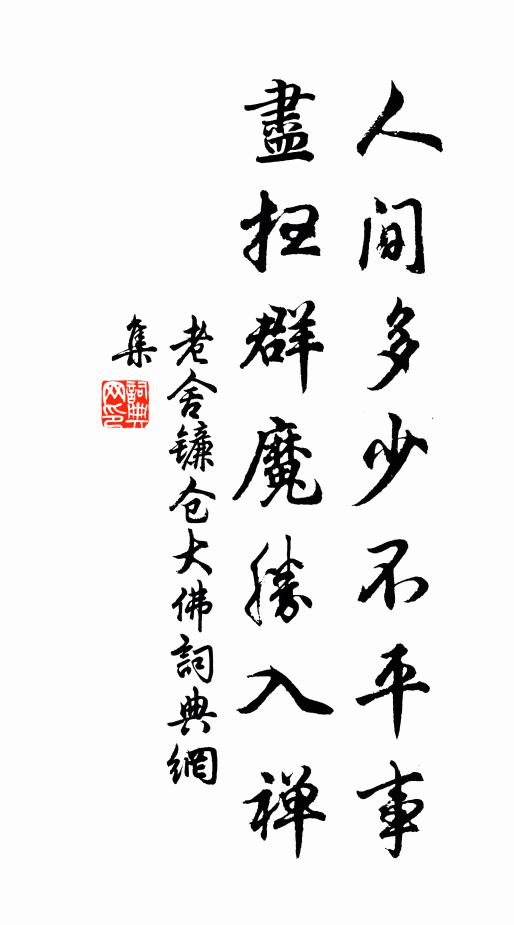 人间多少不平事
盡扫群魔勝入禅
老舍镰仓大佛詞典網
集
詞典
网印